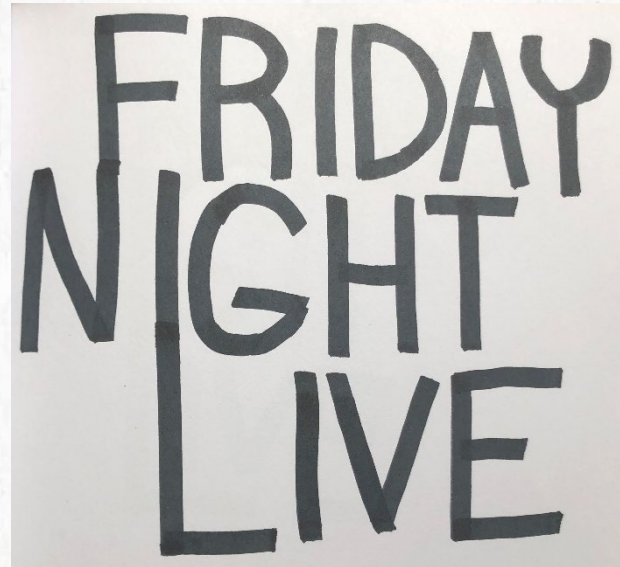 FRIDAY
NIGHT
LIVE